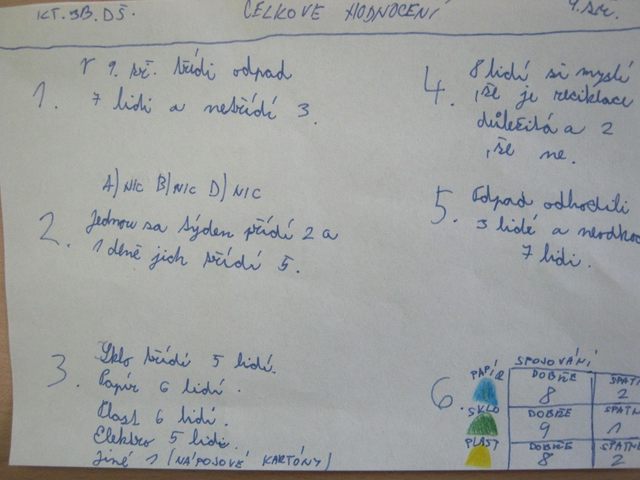 KT. 3B. DŠ.
CELKOVÉ HODNOCENÍ
1. V 9. tř. třídí odpad
7 lidí a netřídí 3.
A) NIC B) NIC D) NIC
2. Jednou za týden třídí 2 a
1 deně jich třídí 5.
3. Sklo třídí 5 lidí.
Papír 6 lidí.
Plast 6 lidí.
Elektro 5 lidí.
Jiné 1 (NÁPOJOVÉ KARTÓNY)
4. 8 lidí si myslí
, že je reciklace
důležitá a 2
, že ne.
5. Odpad odhodili
3 lidé a neodho
7 lidí.
6. SPOJOVÁNÍ
PAPÍR DOBŘE 8 ŠPATN 2
SKLO DOBŘE 9 ŠPATN 1
PLAST DOBŘE 8 ŠPATN 2